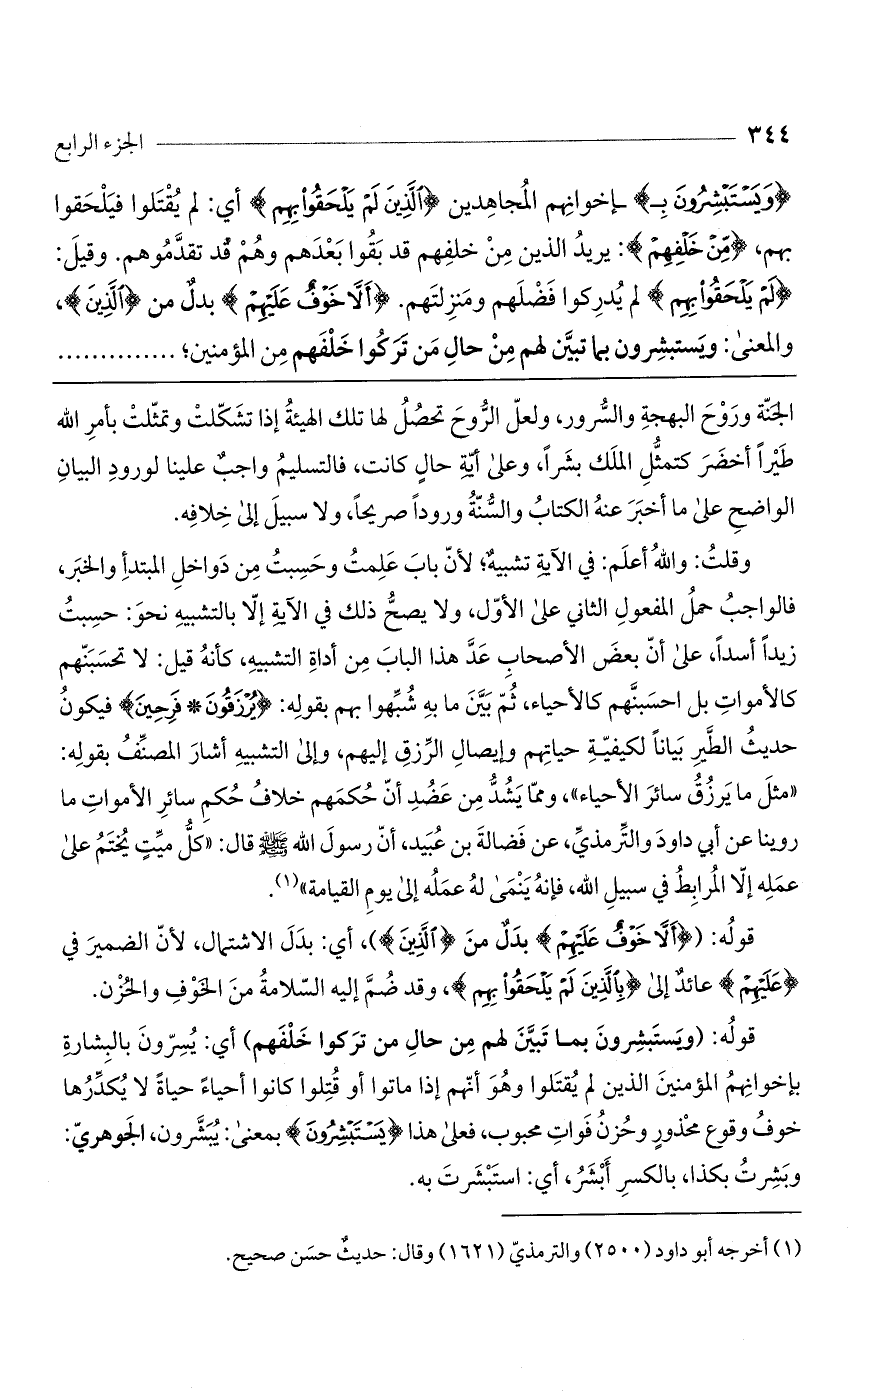 ٣٤٤ الجزء الرابع
﴿وَيَسْتَبْشِرُونَ بِـ﴾ ـإخوانِهم المُجاهِدين ﴿الَّذِينَ لَمْ يَلْحَقُوا بِهِم﴾ أي: لم يُقْتَلوا فيَلْحَقوا
بهم، ﴿مِّنْ خَلْفِهِمْ﴾: يريدُ الذين مِنْ خلفِهم قد بَقُوا بَعْدَهم وهُمْ قُد تقدَّمُوهم. وقيلَ:
﴿لَمْ يَلْحَقُوا بِهِم﴾ لم يُدرِكوا فَضْلَهم ومَنزِلتَهم. ﴿أَلَّا خَوْفٌ عَلَيْهِمْ﴾ بدلٌ من ﴿الَّذِينَ﴾،
والمعنىٰ: ويَستبشِرون بما تبيَّن لهم مِنْ حالِ مَن تَرَكُوا خَلْفَهم مِن المؤمنين؛ ..............
الجنّة ورَوْحَ البهجةِ والسُّرور، ولعلّ الرُّوحَ تحصُلُ لها تلك الهيئةُ إذا تشكّلتْ وتمثّلتْ بأمرِ الله
طَيْراً أخضَرَ كتمثُّلِ الملَك بشَراً، وعلىٰ أيّةِ حالٍ كانت، فالتسليمُ واجبٌ علينا لورودِ البيانِ
الواضحِ علىٰ ما أخبَرَ عنهُ الكتابُ والسُّنّةُ وروداً صريحاً، ولا سبيلَ إلىٰ خِلافِه.
وقلتُ: واللهُ أعلَم: في الآيةِ تشبيهٌ؛ لأنّ بابَ عَلِمتُ وحَسِبتُ مِن دَواخلِ المبتدأِ والخبَر،
فالواجبُ حملُ المفعولِ الثاني علىٰ الأوّل، ولا يصحُّ ذلك في الآيةِ إلّا بالتشبيهِ نحوَ: حسِبتُ
زيداً أسداً، علىٰ أنّ بعضَ الأصحابِ عَدَّ هذا البابَ مِن أداةِ التشبيهِ، كأنهُ قيل: لا تحسَبَنّهم
كالأمواتِ بل احسَبنَّهم كالأحياء، ثُمّ بَيَّنَ ما بهِ شُبِّهوا بهم بقولِه: ﴿يُرْزَقُونَ * فَرِحِينَ﴾ فيكونُ
حديثُ الطَّيرِ بَياناً لكيفيّةِ حياتِهم وإيصالِ الرِّزقِ إليهم، وإلىٰ التشبيهِ أشارَ المصنِّفُ بقولِه:
«مثلَ ما يَرزُقُ سائرَ الأحياء»، وممّا يَشُدُّ مِن عَضُدِ أنّ حُكمَهم خلافُ حُكمِ سائرِ الأمواتِ ما
روينا عن أبي داودَ والتِّرمذيِّ، عن فَضالةَ بن عُبَيد، أنّ رسولَ الله ﷺ قال: «كلُّ ميِّتٍ يُختَمُ علىٰ
عمَلِه إلّا المُرابِطُ في سبيلِ الله، فإنهُ يَنْمَىٰ لهُ عمَلُه إلىٰ يومِ القيامة»(١).
قولُه: (﴿أَلَّا خَوْفٌ عَلَيْهِمْ﴾ بدَلٌ منَ ﴿الَّذِينَ﴾)، أي: بدَلَ الاشتمال، لأنّ الضميرَ في
﴿عَلَيْهِمْ﴾ عائدٌ إلىٰ ﴿بِالَّذِينَ لَمْ يَلْحَقُوا بِهِم﴾، وقد ضُمَّ إليه السّلامةُ منَ الخَوْفِ والحُزْن.
قولُه: (ويَستَبشِرونَ بمـا تَبيَّنَ لهم مِن حالِ من ترَكوا خَلْفَهم) أي: يُسِرّونَ بالبِشارةِ
بإخوانِهمُ المؤمنينَ الذين لم يُقتَلوا وهُوَ أنّهم إذا ماتوا أو قُتِلوا كانوا أحياءً حياةً لا يُكدِّرُها
خوفُ وقوعِ محْذورٍ وحُزنُ فَواتِ محبوب، فعلىٰ هذا ﴿يَسْتَبْشِرُونَ﴾ بمعنىٰ: يُبَشَّرون، الجَوهريّ:
وبَشِرتُ بكذا، بالكسرِ أَبْشَرُ، أي: استَبْشَرتَ به.
(١) أخرجه أبو داود (٢٥٠٠) والترمذيّ (١٦٢١) وقال: حديثٌ حسَن صحيح.